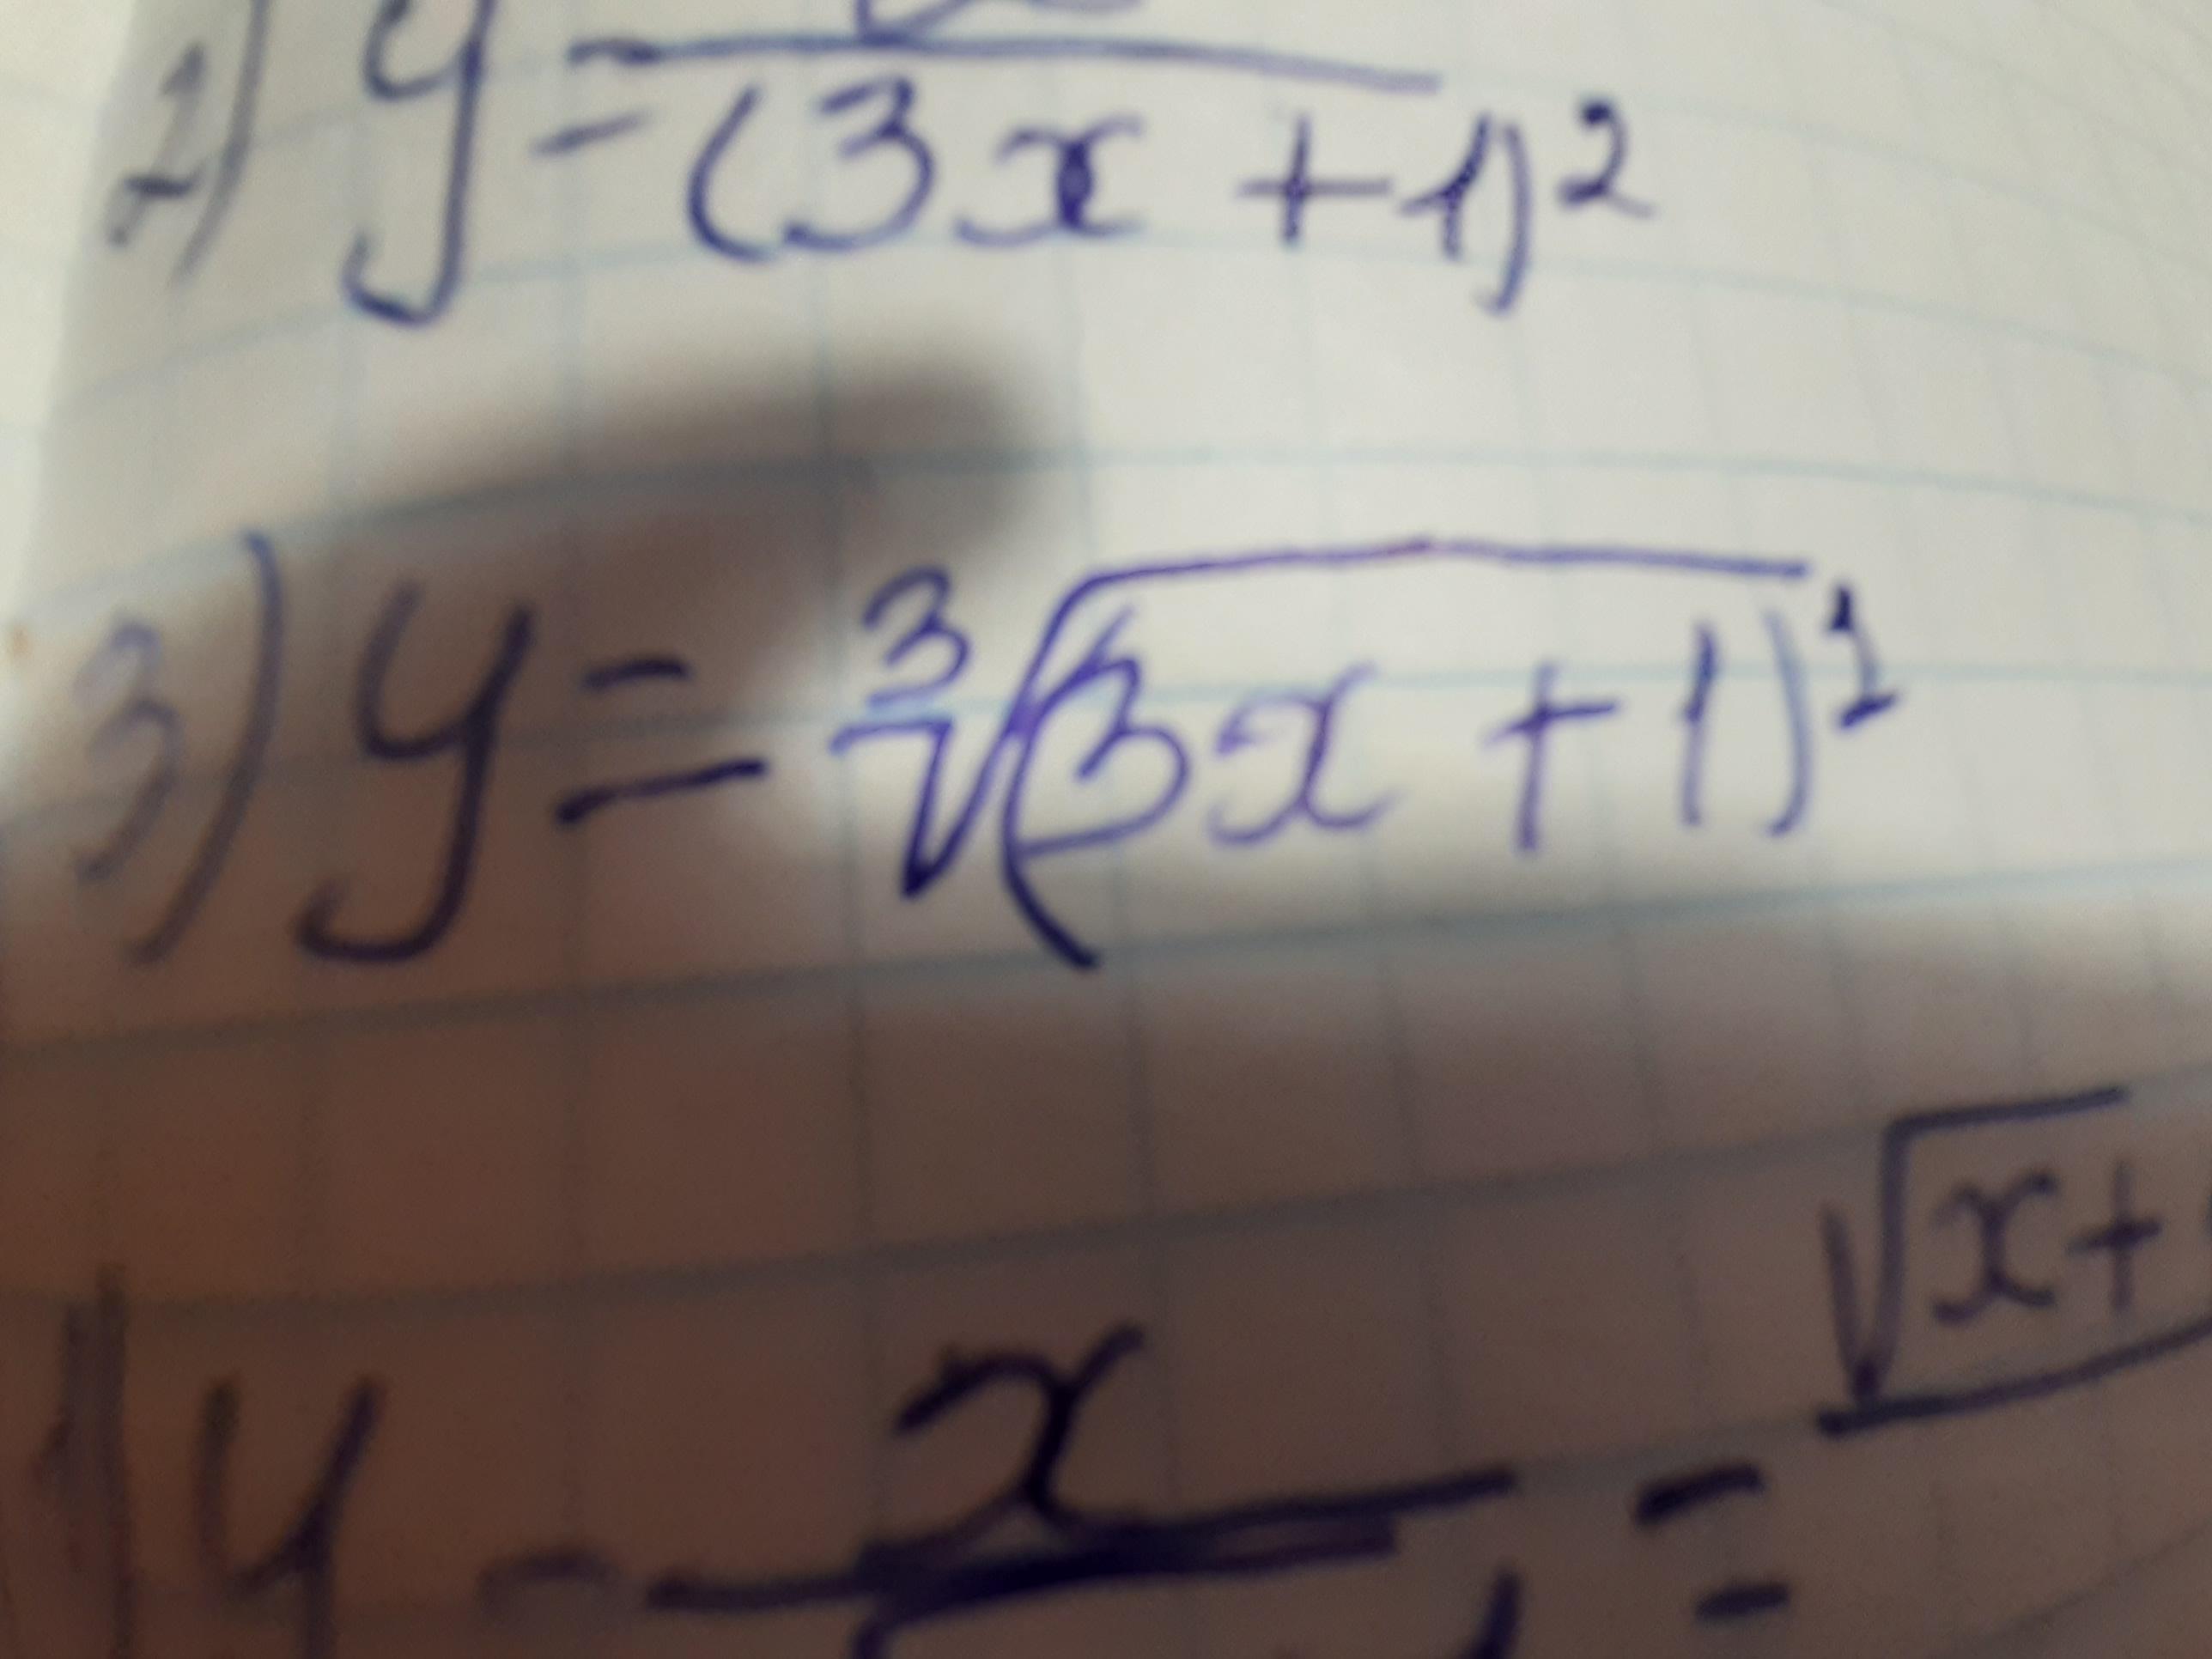 2) y = / (3x + 1)²
3) y = ³√(3x + 1)²
y = x = √x +